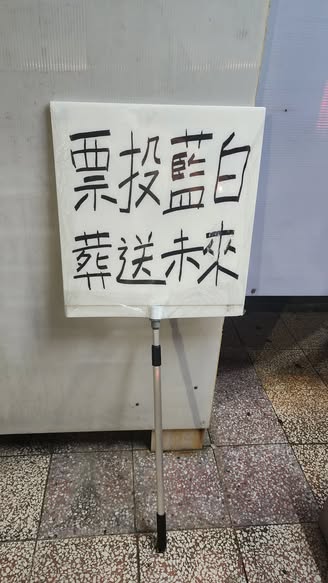 票投藍白
葬送未來